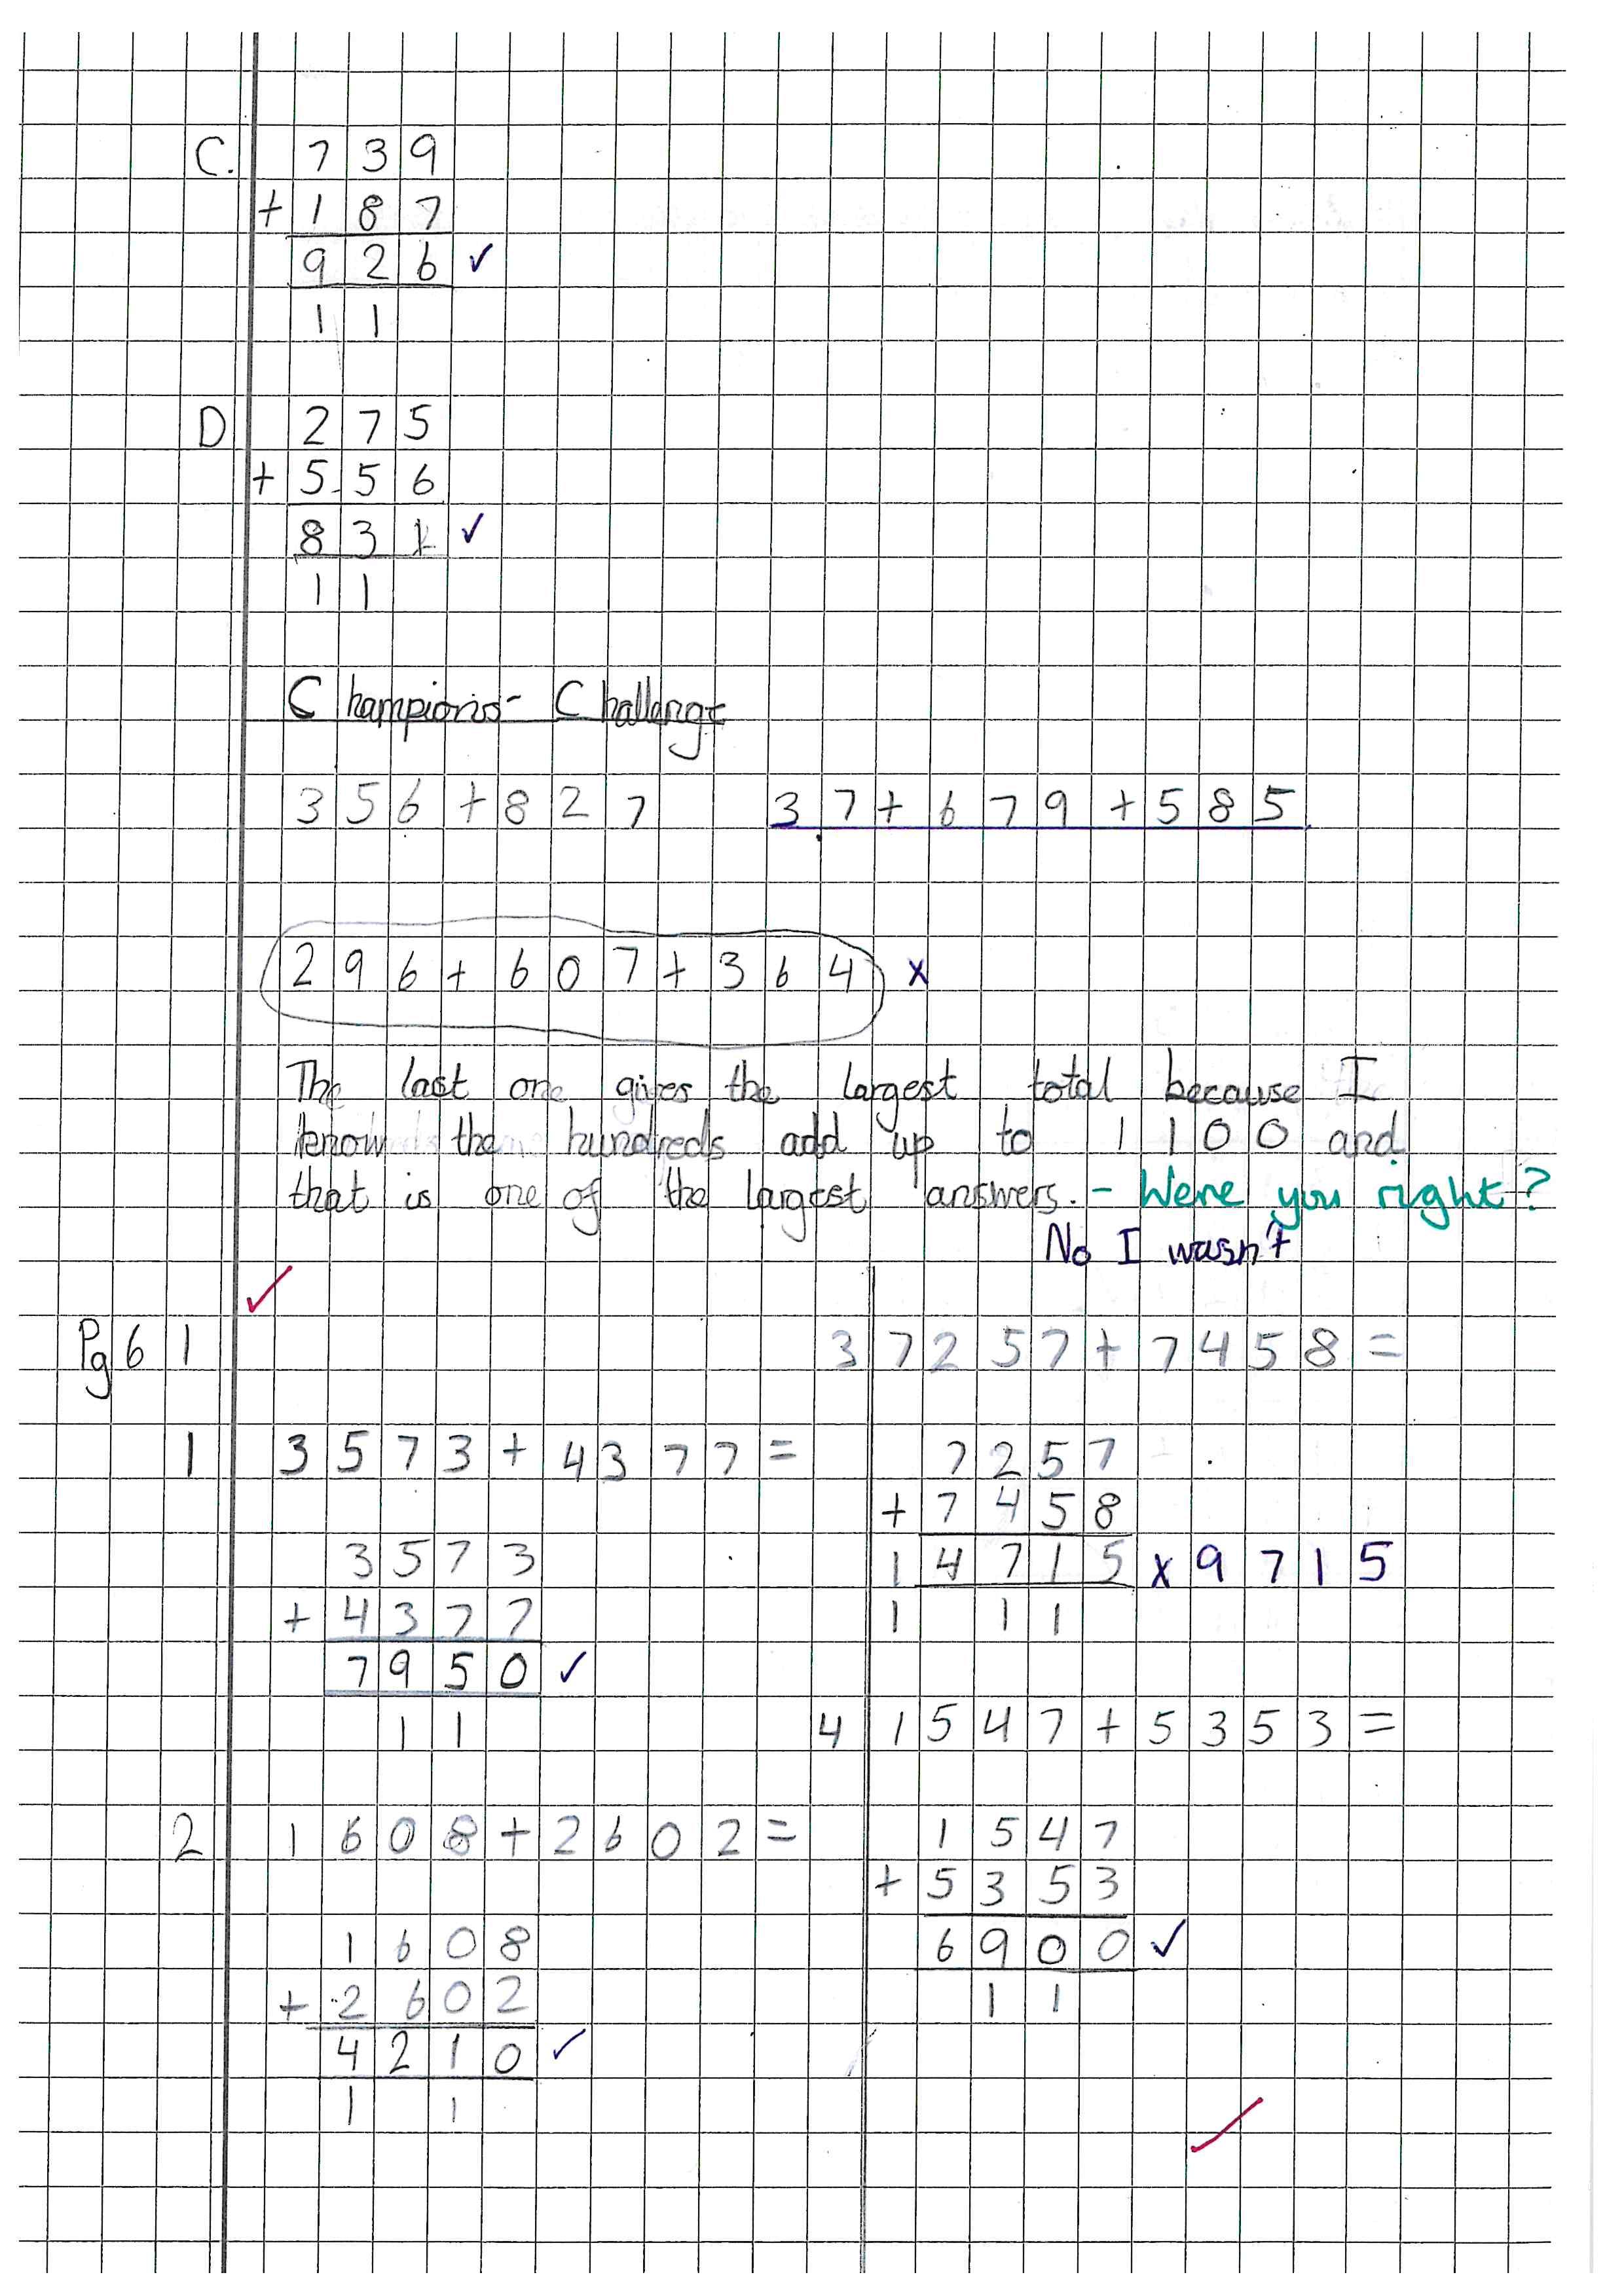 C. 739
+187
926 ✓
11
D 275
+556
831 ✓
11
Champions Challenge
356+827 37+679+585
296+607+364 x
The last one gives the largest total because I
know the hundreds add up to 1100 and
that is one of the largest answers. - Were you right?
No I wasn't
✓
Pg 61
1 3573+4377=
3573
+4377
7950 ✓
11
2 1608+2602=
1608
+2602
4210 ✓
1 1
3 7257+7458=
7257
+7458
14715 x 9715
1 11
4 1547+5353=
1547
+5353
6900 ✓
11
✓